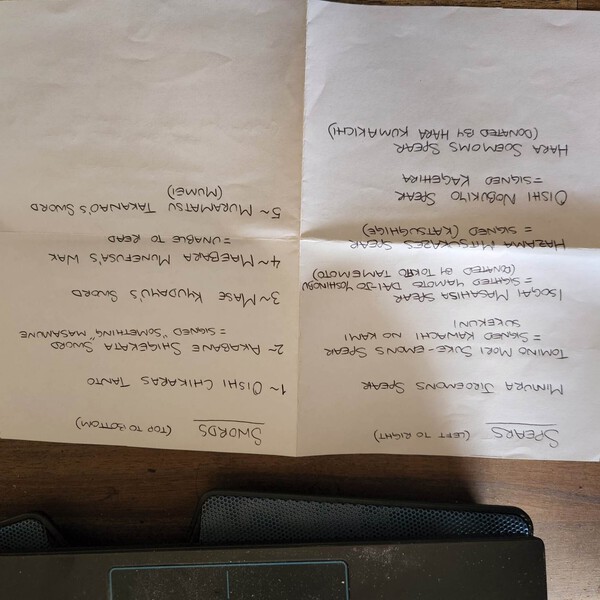 SPEARS (LEFT TO RIGHT)
MIMURA JIROEMONS SPEAR
TOMINO MORI SUKE-EMONS SPEAR
= SIGNED KAWACHI NO KAMI
SUKEKUNI
ISOGAI MASAHISA SPEAR
= SIGHTED YAMOTO DAI-JO YOSHINOBU
(DONATED BY TAMEMOTO)
HAZAMA MITSUKAZES SPEAR
= SIGNED (KATSUGHIGE)
OISHI NOBUKIYO SPEAR
= SIGNED KAGEHIRA
HARA SOEMOMS SPEAR
(DONATED BY HARA KUMAKICHI)
SWORDS (TOP TO BOTTOM)
1~ OISHI CHIKARAS TANTO
2~ AKABANE SHIGEKATA SWORD
= SIGNED "SOMETHING" MASAMUNE
3~ MASE KYUDAYU'S SWORD
4~ MAEBARA MUNEFUSA'S WAK
= UNABLE TO READ
5~ MURAMATSU TAKANAO'S SWORD
(MUMEI)